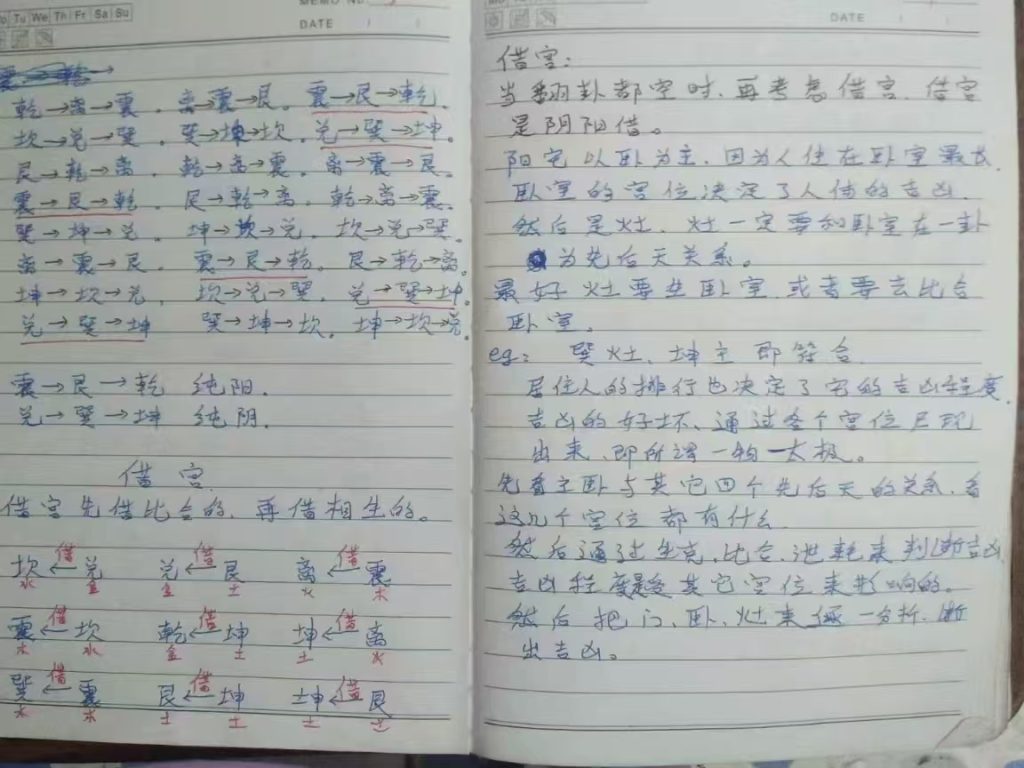 Tu We Th Fr Sa Su
MEMO NO.
DATE
乾→离→震。离→震→艮。震→艮→乾。
坎→兑→巽。巽→坤→坎。兑→巽→坤。
艮→乾→离。乾→离→震。离→震→艮。
震→艮→乾。艮→乾→离。乾→离→震。
巽→坤→兑。坤→坎→兑。坎→兑→巽。
离→震→艮。震→艮→乾。艮→乾→离。
坤→坎→兑。坎→兑→巽。兑→巽→坤。
兑→巽→坤 巽→坤→坎。坤→坎→兑
震→艮→乾 纯阳.
兑→巽→坤 纯阴.
借宫.
借宫先借比合的,再借相生的。
坎←借兑 兑←借艮 离←借震
水 金 金 土 火 木
震←借坎 乾←借坤 坤←借离
木 水 金 土 土 火
巽←借震 艮←借坤 坤←借艮
木 木 土 土 土 土
DATE
借宫:
当翻卦都空时,再考虑借宫.借宫
是阴阳借。
阳宅以卧为主.因为人住在卧室最长.
卧室的宫位决定了人住的吉凶.
然后是灶.灶一定要和卧室在一卦
为先后天关系。
最好灶要生卧室.或者要去比合
卧室.
eg: 巽灶、坤主即符合.
居住人的排行也决定了宅的吉凶程度.
吉凶的好坏、通过各个宫位尸现
出来、即所谓一物一太极。
先看主卧与其它四个先后天的关系.看
这几个宫位都有什么.
然后通过生克,比合,泄耗来判断吉凶
吉凶程度是受其它宫位来影响的。
然后把门、卧、灶来逐一分析.断
出吉凶。